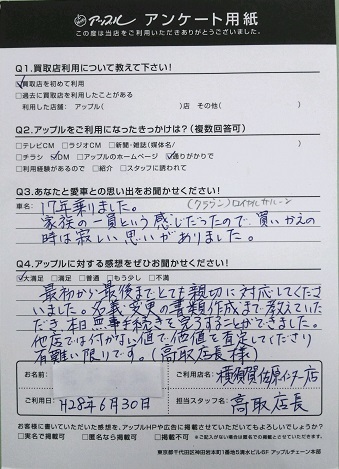 アップル アンケート用紙
この度は当店をご利用いただきありがとうございました。
Q1.買取店利用について教えて下さい!
☑買取店を初めて利用
□過去に買取店を利用したことがある
利用した店舗: アップル( )店 その他( )
Q2.アップルをご利用になったきっかけは?(複数回答可)
□テレビCM □ラジオCM □新聞・雑誌(媒体名: )
□チラシ ☑DM □アップルのホームページ ☑通りがかりで
□利用経験があるので □紹介 □スタッフに誘われて
Q3.あなたと愛車との思い出をお聞かせください!
車名: (クラウン)ロイヤルサルーン
17年乗りました。
家族の一員という感じだったので、買いかえ
の時は寂しい思いがありました。
Q4.アップルに対する感想をぜひお聞かせください!
☑大満足 □満足 □普通 □もう少し □不満
最初から最後までとても親切に対応してくださ
いました。名義変更の書類作成まで教えていた
だき、本日無事手続きを完了することができました。
他店では付かない値で、価値を査定してくださり
有難い限りです。(高取店長様)
お名前:
ご利用店名: 横須賀佐原インター店
ご利用日: H28年6月30日
担当スタッフ名: 高取店長
お客様に書いていただいた感想を、アップルHPや広告に掲載させていただいてもよろしいでしょうか?
□実名で掲載可 □匿名なら掲載可 □掲載不可 ※ご記入がない場合は匿名での掲載とさせていただきます。
東京都千代田区神田岩本町1番地5清水ビル6F アップルチェーン本部